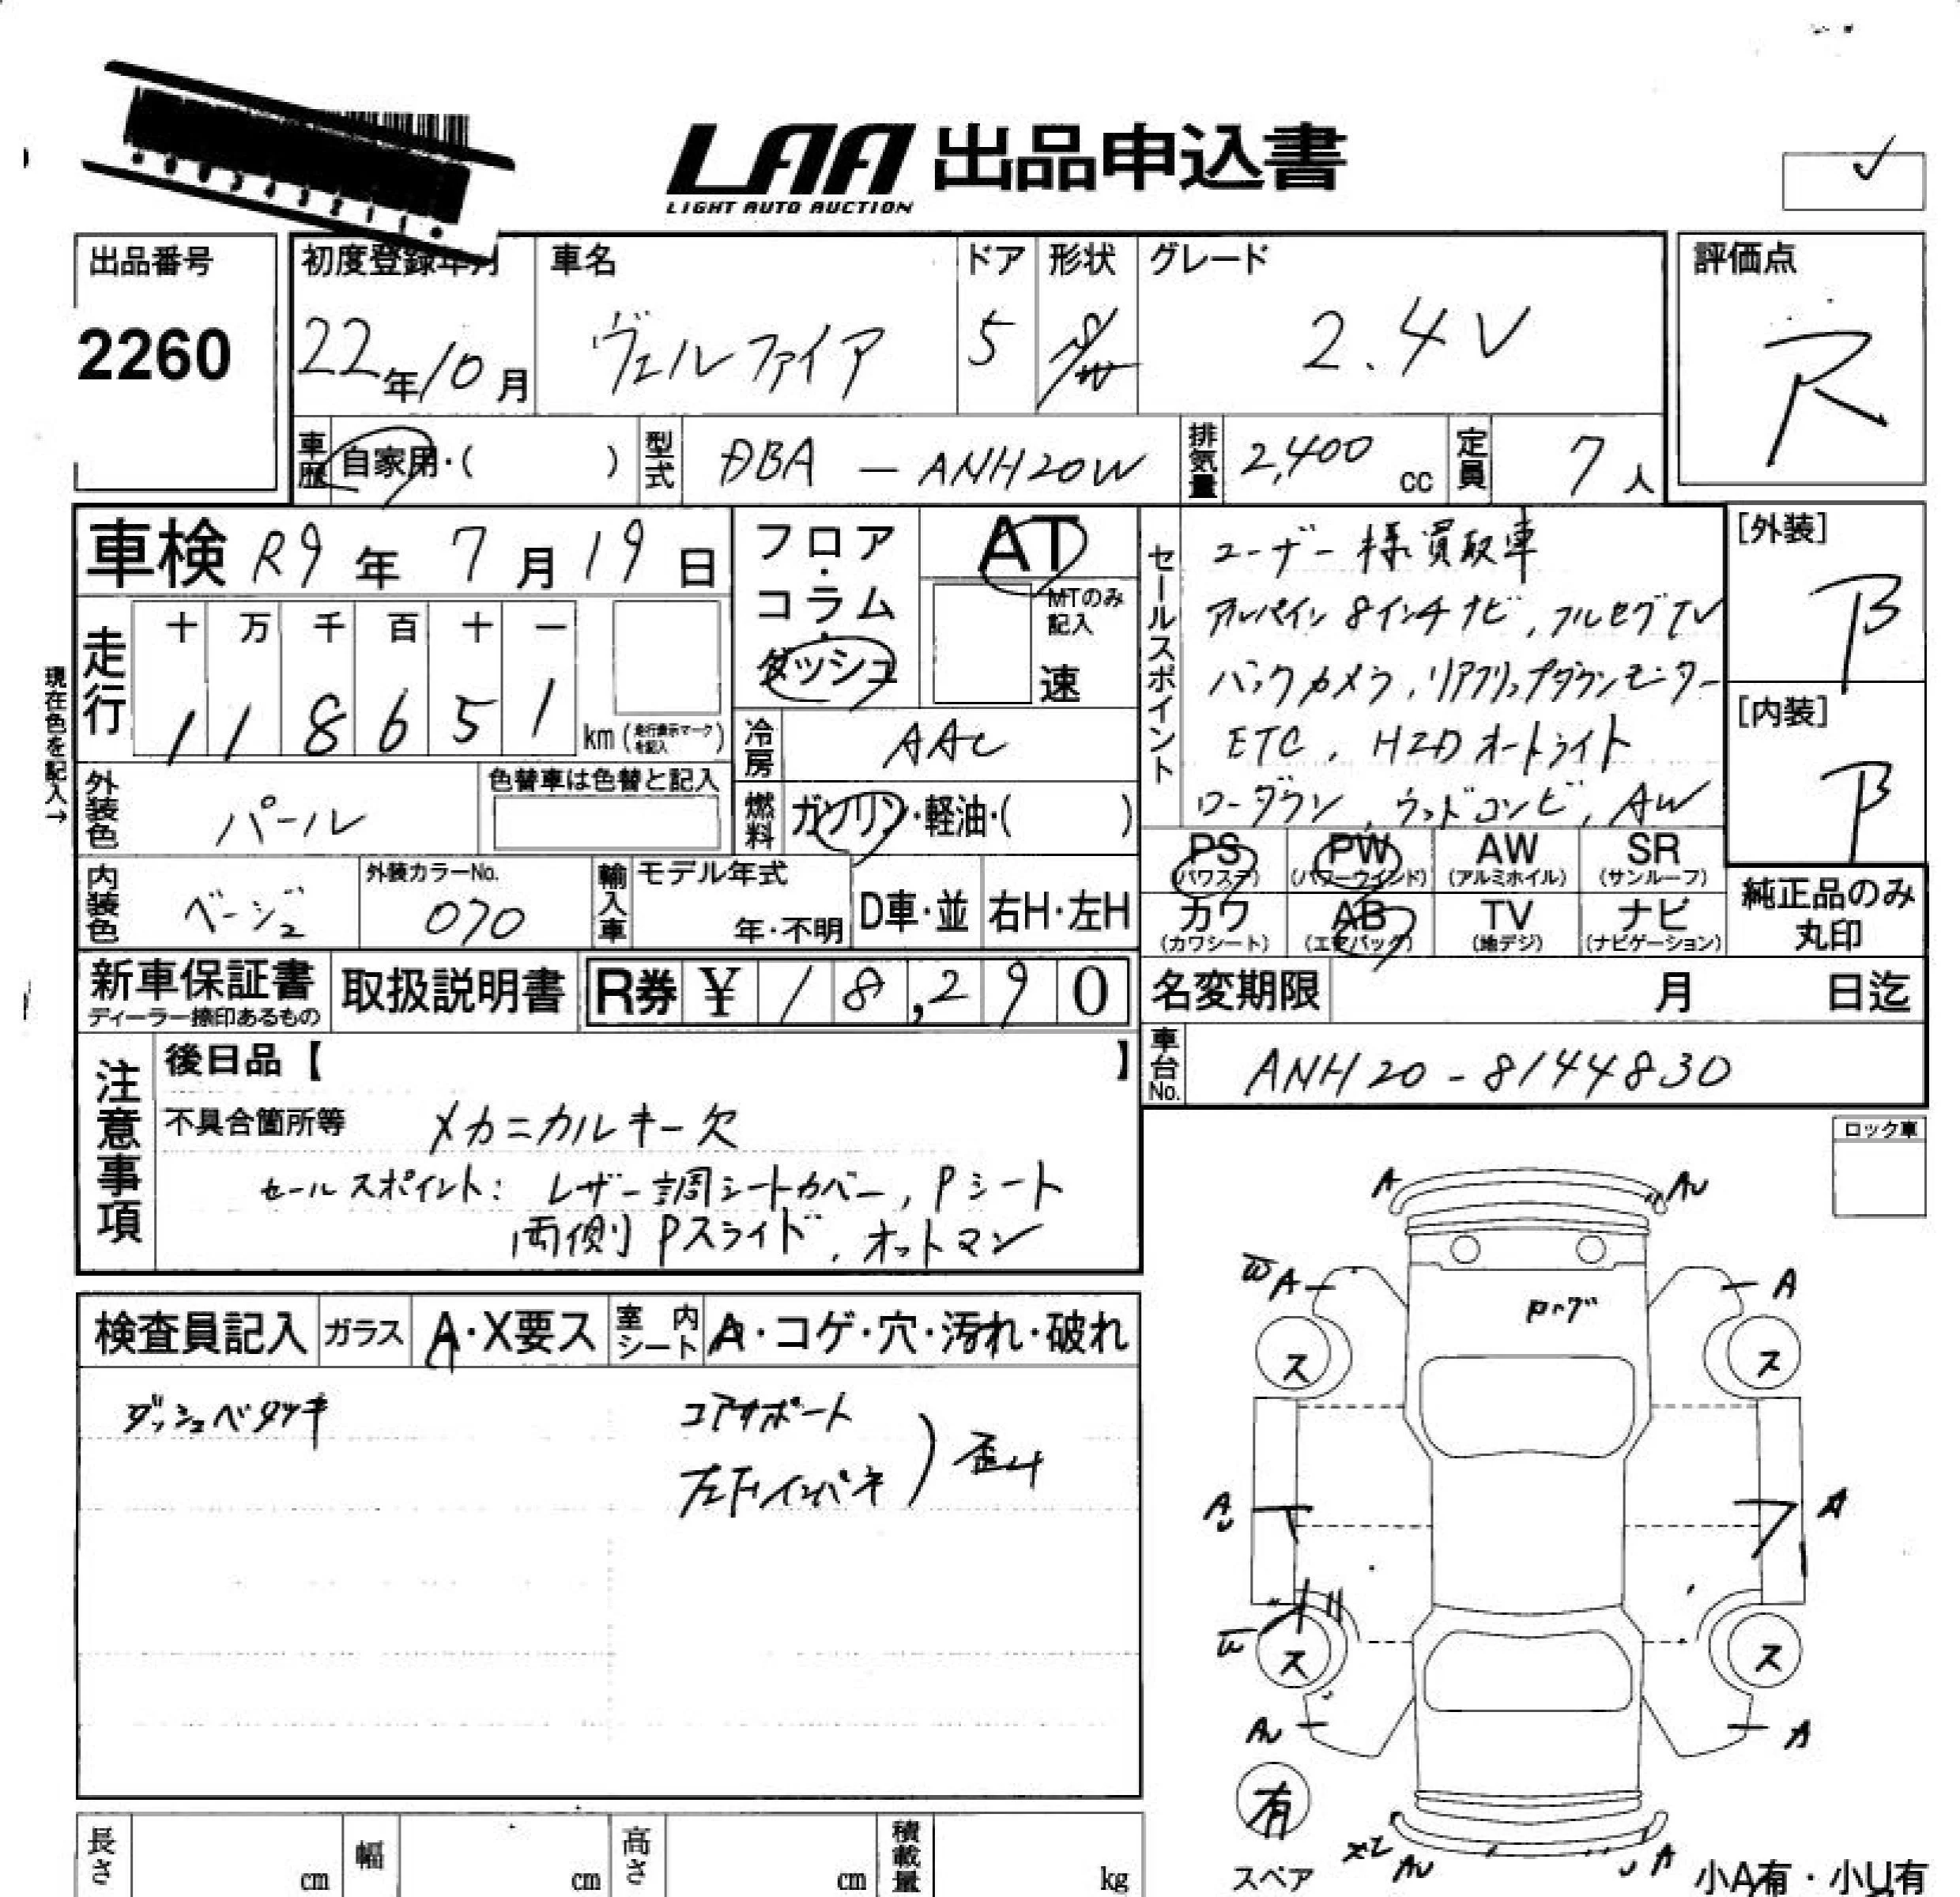 LAA 出品申込書
LIGHT AUTO AUCTION
出品番号
2260
初度登録年月
22年10月
車名
ヴェルファイア
ドア
5
形状
S/W
グレード
2.4V
評価点
R
車歴 自家用・( )
型式 DBA-ANH20W
排気量 2,400 cc
定員 7人
車検 R9年7月19日
フロア・コラム・ダッシュ
AT
MTのみ記入
速
走行
十 万 千 百 十 一
1 1 8 6 5 1 km (走行表示マークを記入)
現在色を記入→
冷房 AAC
燃料 ガソリン・軽油・( )
外装色 パール
色替車は色替と記入
内装色 ベージュ
外装カラーNo.
070
輸入車 モデル年式
年・不明
D車・並
右H・左H
セールスポイント
ユーザー様買取車
アルパイン8インチナビ,フルセグTV
バックカメラ,リアフリップダウンモニター
ETC,HIDオートライト
ローダウン,ウッドコンビ,AW
[外装]
B
[内装]
B
PS (パワステ)
PW (パワーウインド)
AW (アルミホイル)
SR (サンルーフ)
カワ (カワシート)
AB (エアバック)
TV (地デジ)
ナビ (ナビゲーション)
純正品のみ丸印
新車保証書
ディーラー捺印あるもの
取扱説明書
R券 ¥18,290
名変期限 月 日迄
車台No. ANH20-8144830
注意事項
後日品【 】
不具合箇所等 メカニカルキー欠
セールスポイント: レザー調シートカバー,Pシート
両側Pスライド,オットマン
検査員記入
ガラス A・X要ス
室内シート A・コゲ・穴・汚れ・破れ
ダッシュベタツキ
コアサポート
左Fインパネ
歪み
ロック車
A
AU
W A
A
ス
ス
AU
A
W
ス
ス
AU
A
有
スペア
AU
U A
小A有・小U有
長さ cm
幅 cm
高さ cm
積載量 kg